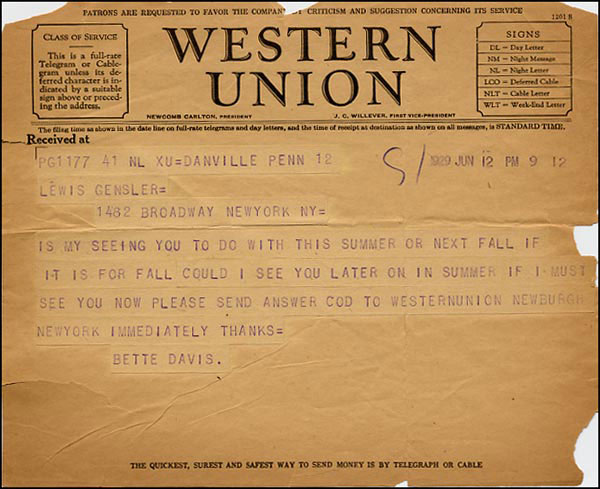 PATRONS ARE REQUESTED TO FAVOR THE COMPANY BY CRITICISM AND SUGGESTION CONCERNING ITS SERVICE
1201 S
CLASS OF SERVICE
This is a full-rate
Telegram or Cable-
gram unless its de-
ferred character is in-
dicated by a suitable
sign above or preced-
ing the address.
WESTERN
UNION
NEWCOMB CARLTON, PRESIDENT
J. C. WILLEVER, FIRST VICE-PRESIDENT
SIGNS
DL = Day Letter
NM = Night Message
NL = Night Letter
LCO = Deferred Cable
NLT = Cable Letter
WLT = Week-End Letter
The filing time as shown in the date line on full-rate telegrams and day letters, and the time of receipt at destination as shown on all messages, is STANDARD TIME.
Received at
PG1177 41 NL XU=DANVILLE PENN 12
1929 JUN 12 PM 9 12
LEWIS GENSLER=
1482 BROADWAY NEWYORK NY=
IS MY SEEING YOU TO DO WITH THIS SUMMER OR NEXT FALL IF
IT IS FOR FALL COULD I SEE YOU LATER ON IN SUMMER IF I MUST
SEE YOU NOW PLEASE SEND ANSWER COD TO WESTERNUNION NEWBURGH
NEWYORK IMMEDIATELY THANKS=
BETTE DAVIS.
THE QUICKEST, SUREST AND SAFEST WAY TO SEND MONEY IS BY TELEGRAPH OR CABLE